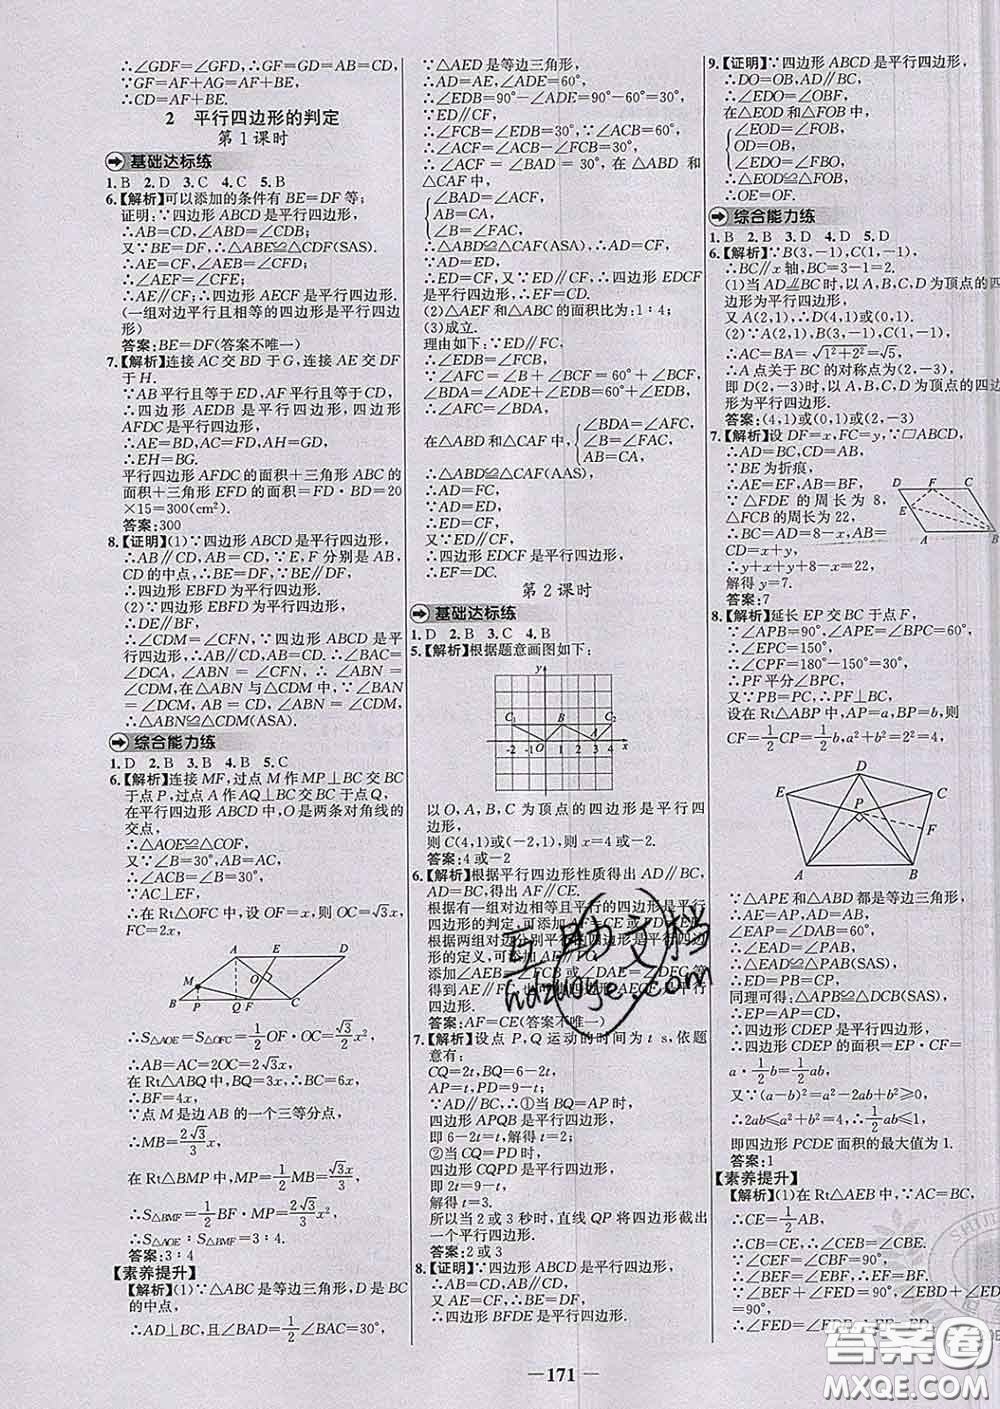 ∴∠GDF=∠GFD,∴GF=GD=AB=CD,
∵GF=AF+AG=AF+BE,
∴CD=AF+BE.
2 平行四边形的判定
第1课时
基础达标练
1.B 2.D 3.C 4.C 5.B
6.【解析】可以添加的条件有BE=DF等;
证明:∵四边形ABCD是平行四边形,
∴AB=CD,∠ABD=∠CDB;
又∵BE=DF,∴△ABE≌△CDF(SAS).
∴AE=CF,∠AEB=∠CFD.
∴∠AEF=∠CFE;
∴AE∥CF;∴四边形AECF是平行四边形.
(一组对边平行且相等的四边形是平行四边形)
答案:BE=DF(答案不唯一)
7.【解析】连接AC交BD于G,连接AE交DF
于H.
∵AB平行且等于ED,AF平行且等于CD,
∴四边形AEDB是平行四边形,四边形
AFDC是平行四边形,
∴AE=BD,AC=FD,AH=GD,
∴EH=BG.
平行四边形AFDC的面积+三角形ABC的
面积+三角形EFD的面积=FD·BD=20
×15=300(cm²).
答案:300
8.【证明】(1)∵四边形ABCD是平行四边形,
∴AB∥CD,AB=CD;∵E,F分别是AB,
CD的中点,∴BE=DF,∵BE∥DF,
∴四边形EBFD为平行四边形.
(2)∵四边形EBFD为平行四边形,
∴DE∥BF,
∴∠CDM=∠CFN,∵四边形ABCD是平
行四边形,∴AB∥CD,AB=CD.∴∠BAC=
∠DCA,∠ABN=∠CFN,∴∠ABN=
∠CDM,在△ABN与△CDM中,∵∠BAN
=∠DCM,AB=CD,∠ABN=∠CDM,
∴△ABN≌△CDM(ASA).
综合能力练
1.D 2.B 3.D 4.B 5.C
6.【解析】连接MF,过点M作MP⊥BC交BC
于点P,过点A作AQ⊥BC交BC于点Q,
在平行四边形ABCD中,O是两条对角线的
交点,
∴△AOE≌△COF,
又∵∠B=30°,AB=AC,
∵AC⊥EF,
∴在Rt△OFC中,设OF=x,则OC=√3x,
FC=2x,
A E D M O B P Q F C
∴S△AOE=S△OFC=1/2 OF·OC=√3/2 x²,
∴AB=AC=2OC=2√3x,
在Rt△ABQ中,BQ=3x,∴BC=6x,
∴BF=4x,
∵点M是边AB的一个三等分点,
∴MB=2√3/3 x,
在Rt△BMP中,MP=1/2 MB=√3/3 x,
∴S△BMF=1/2 BF·MP=2√3/3 x²,
∴S△AOE∶S△BMF=3∶4;
答案:3∶4
【素养提升】
【解析】(1)∵△ABC是等边三角形,D是BC
的中点,
∴AD⊥BC,且∠BAD=1/2∠BAC=30°,
∵△AED是等边三角形,
∴AD=AE,∠ADE=60°,
∴∠EDB=90°-∠ADE=90°-60°=30°,
∵ED∥CF,
∴∠FCB=∠EDB=30°,∵∠ACB=60°,
∴∠ACF=∠BAD=30°,在△ABD和
△CAF中,
∠BAD=∠ACF,
AB=CA,
∠B=∠FAC,
∴△ABD≌△CAF(ASA),∴AD=CF,
∵AD=ED,
∴ED=CF,又∵ED∥CF,∴四边形EDCF
是平行四边形,∴EF=CD.
(2)△AEF和△ABC的面积比为:1∶4;
(3)成立.
理由如下:∵ED∥FC,
∴∠EDB=∠FCB,
∵∠AFC=∠B+∠BCF=60°+∠BCF,
∠BDA=∠ADE+∠EDB=60°+∠EDB,
∴∠AFC=∠BDA,
在△ABD和△CAF中,
∠BDA=∠AFC,
∠B=∠FAC,
AB=CA,
∴△ABD≌△CAF(AAS),
∴AD=FC,
∵AD=ED,
∴ED=CF,
又∵ED∥CF,
∴四边形EDCF是平行四边形,
∴EF=DC.
第2课时
基础达标练
1.D 2.B 3.C 4.B
5.【解析】根据题意画图如下:
y C₁ B C₂ A -2 -1 O 1 2 3 4 x
以O,A,B,C为顶点的四边形是平行四
边形,
则C(4,1)或(-2,1),则x=4或-2.
答案:4或-2
6.【解析】根据平行四边形性质得出AD∥BC,
AD=BC,得出AF∥CE.
根据有一组对边相等且平行的四边形是平行
四边形的判定,可添加AF=CE或FD=EB.
根据两组对边分别平行的四边形是平行四边形
的定义,可添加AE∥FC.
添加∠AEB=∠FCB或∠DAE=∠DFC等
得到AE∥FC,也可使四边形AECF是平行
四边形.
答案:AF=CE(答案不唯一)
7.【解析】设点P,Q运动的时间为t s,依题
意有:
CQ=2t,BQ=6-2t,
AP=t,PD=9-t;
∵AD∥BC,∴①当BQ=AP时,
四边形APQB是平行四边形,
即6-2t=t,解得t=2;
②当CQ=PD时,
四边形CQPD是平行四边形,
即2t=9-t,
解得t=3.
所以当2或3秒时,直线QP将四边形截出
一个平行四边形.
答案:2或3
8.【证明】∵四边形ABCD是平行四边形,
∴AB=CD,AB∥CD,
又AE=CF,∴BE=DF,
∴四边形BFDE是平行四边形.
9.【证明】∵四边形ABCD是平行四边形,
∴DO=OB,AD∥BC,
∴∠EDO=∠OBF.
在△EOD和△FOB中,
∠EOD=∠FOB,
OD=OB,
∠EDO=∠FBO,
∴△EOD≌△FOB,
∴OE=OF.
综合能力练
1.B 2.B 3.D 4.D 5.D
6.【解析】∵B(3,-1),C(1,-1),
∴BC∥x轴,BC=3-1=2.
(1)当AD∥BC时,以A,B,C,D为顶点的四
边形为平行四边形.
又A(2,1),∴D(4,1)或(0,1).
(2)∵A(2,1),B(3,-1),C(1,-1),
∴AC=BA=√(1²+2²)=√5.
∴A点关于BC的对称点为(2,-3),
即D(2,-3)时,以A,B,C,D为顶点的四边
形为平行四边形.
答案:(4,1)或(0,1)或(2,-3)
7.【解析】设DF=x,FC=y,∵□ABCD,
∴AD=BC,CD=AB,
∵BE为折痕,
∴AE=EF,AB=BF,
∵△FDE的周长为8,
△FCB的周长为22,
∴BC=AD=8-x,AB=
CD=x+y,
∴y+x+y+8-x=22,
解得y=7.
答案:7
D F C E A B
8.【解析】延长EP交BC于点F,
∵∠APB=90°,∠APE=∠BPC=60°,
∴∠EPC=150°,
∴∠CPF=180°-150°=30°,
∴PF平分∠BPC,
又∵PB=PC,∴PF⊥BC,
设在Rt△ABP中,AP=a,BP=b,则
CF=1/2 CP=1/2 b,a²+b²=2²=4,
D E C P F A B
∵△APE和△ABD都是等边三角形,
∴AE=AP,AD=AB,
∠EAP=∠DAB=60°,
∴∠EAD=∠PAB,
∴△EAD≌△PAB(SAS),
同理可得:△APB≌△DCB(SAS),
∴EP=AP=CD,
∴四边形CDEP是平行四边形,
∴四边形CDEP的面积=EP·CF=
a·1/2 b=1/2 ab,
又∵(a-b)²=a²-2ab+b²≥0,
∴2ab≤a²+b²=4,∴1/2 ab≤1,
即四边形PCDE面积的最大值为1.
答案:1
【素养提升】
【解析】(1)在Rt△AEB中,∵AC=BC,
∴CE=1/2 AB,
∴CB=CE,∴∠CEB=∠CBE.
∵∠BEF=∠CEF-∠CEB=60°-∠CBE,
∠BEF=∠ABE+∠EBD+∠CBE
=60°,
∴∠FED=∠FEB+∠BED
171
互助文档
hdzuoye.com
答案圈
MXQE.COM